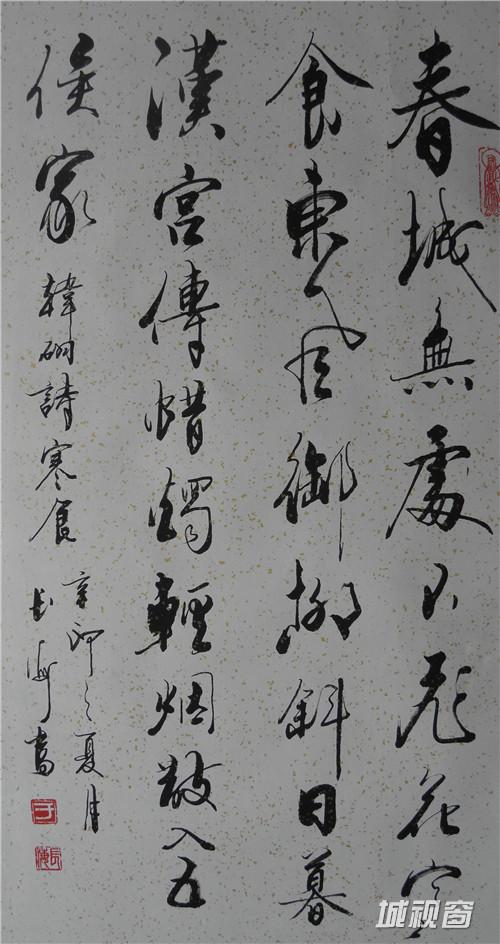 春城無處不飛花寒
食東風御柳斜日暮
漢宮傳蜡燭輕烟散入五
侯家
韓翃詩寒食
辛卯之夏月
長海書
長海
城视窗